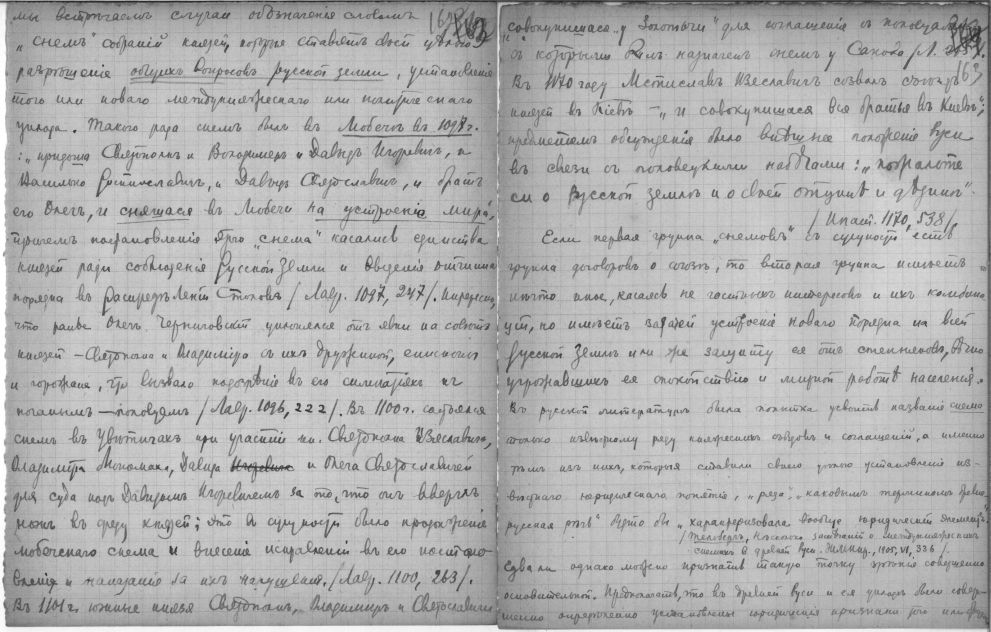 мы встрѣчаемъ случаи обозначенія словомъ
162
„снемъ“ собраній князей, которые ставятъ своей цѣлью
разрѣшеніе общихъ вопросовъ русской земли, установленія
того или новаго междукняжескаго или
уклада. Такого рода снемъ былъ въ Любечѣ въ 1097 г.
: „придоша Святополкъ и Володимеръ и Давыдъ Игоревичъ, и
Василько Ростиславичъ, и Давыдъ Святославичъ, и братъ
его Олегъ, и сняшася въ Любечи на устроеніе мира“,
причемъ постановленія этого „снема“ касались единства
князей ради соблюденія Русской Земли и введенія
порядка въ распредѣленіи столовъ /Лавр. 1097, 247/. Интересно,
что ранѣе Олегъ Черниговскій уклонялся отъ явки на совѣтъ
князей – Святополка и Владиміра съ ихъ дружиной, епископы
и горожане, что вызвало подозрѣніе въ его симпатіяхъ къ
поганымъ – половцамъ /Лавр. 1096, 222/. Въ 1100 г. состоялся
снемъ въ Увѣтичахъ при участіи кн. Святополка Изяславича,
Владиміра Мономаха, Давида Игоревича и Олега Святославичей
для суда надъ Давидомъ Игоревичемъ за то, что онъ ввергъ
ножъ въ среду князей; это въ сущности было продолженіе
любечскаго снема и внесеніе исправленій въ его постано-
вленія и наказаніе за ихъ нарушенія. /Лавр. 1100, 263/.
Въ 1101 г. южные князья Святополкъ, Владимиръ и Святославичи
совокупишася у Золотьчи“ для соглашенія съ половцами,
съ которыми былъ назначенъ снемъ у Сакова /Л.
163
Въ 1170 году Мстиславъ Изяславичъ созвалъ
князей въ Кіевъ – „и совокупишася вся братья въ Киевъ“;
предметомъ обсужденія было внѣшнее положеніе Руси
въ связи съ половецкими набѣгами: „пожалите
си о Русской землѣ и о своей отцинѣ и дѣдинѣ“.
/Ипат. 1170, 538/.
Если первая группа „снемовъ“ въ сущности есть
группа договоровъ о союзѣ, то вторая группа имѣетъ
нѣчто иное, касаясь не частныхъ интересовъ и ихъ
но имѣетъ задачей устроеніе новаго порядка на всей
Русской Землѣ или же защиту ея отъ степняковъ, вѣчно
угрожавшихъ ея спокойствію и мирной работѣ населенія.
Въ русской литературѣ была попытка усвоить названіе снемъ
только извѣстному ряду княжескихъ съѣздовъ и соглашеній, а именно
тѣмъ изъ нихъ, которые ставили своею цѣлью установленіе из-
вѣстнаго юридическаго понятія, „ряда“, „каковымъ терминомъ древне-
русская рѣчь“ будто бы „характеризовала вообще юридическій элементъ“.
/ Нѣсколько замѣчаній о междукняжескихъ
снемахъ въ древней Руси. Ж.М.Н.Пр., 1905, VI, 336/.
Едва ли однако можно признать такую точку зрѣнія совершенно
основательной. Предполагать, что въ древней Руси и ея укладѣ было совер-
шенно опредѣленно установлены юридическіе признаки того или